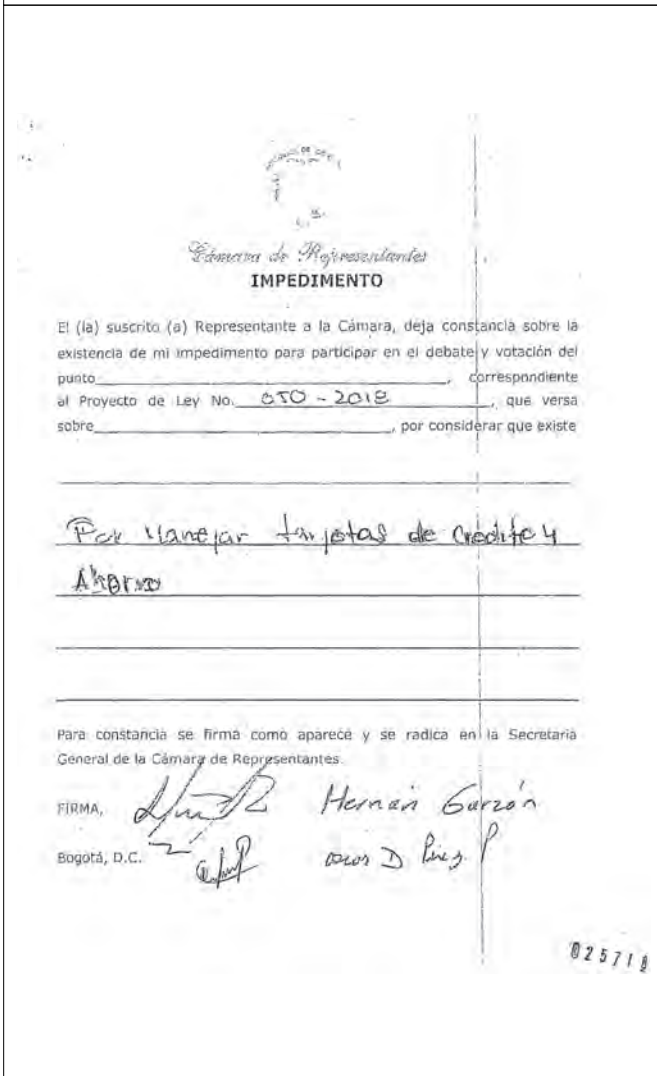 Cámara de Representantes
IMPEDIMENTO
El (la) suscrito (a) Representante a la Cámara, deja constancia sobre la
existencia de mi impedimento para participar en el debate y votación del
punto____________, correspondiente
al Proyecto de Ley No. 050 - 2018, que versa
sobre____________, por considerar que existe
Por Manejar tarjetas de Crédito y
Ahorro
Para constancia se firma como aparece y se radica en la Secretaria
General de la Cámara de Representantes.
FIRMA, Hernán Garzón
Bogotá, D.C. Oscar D Pérez P